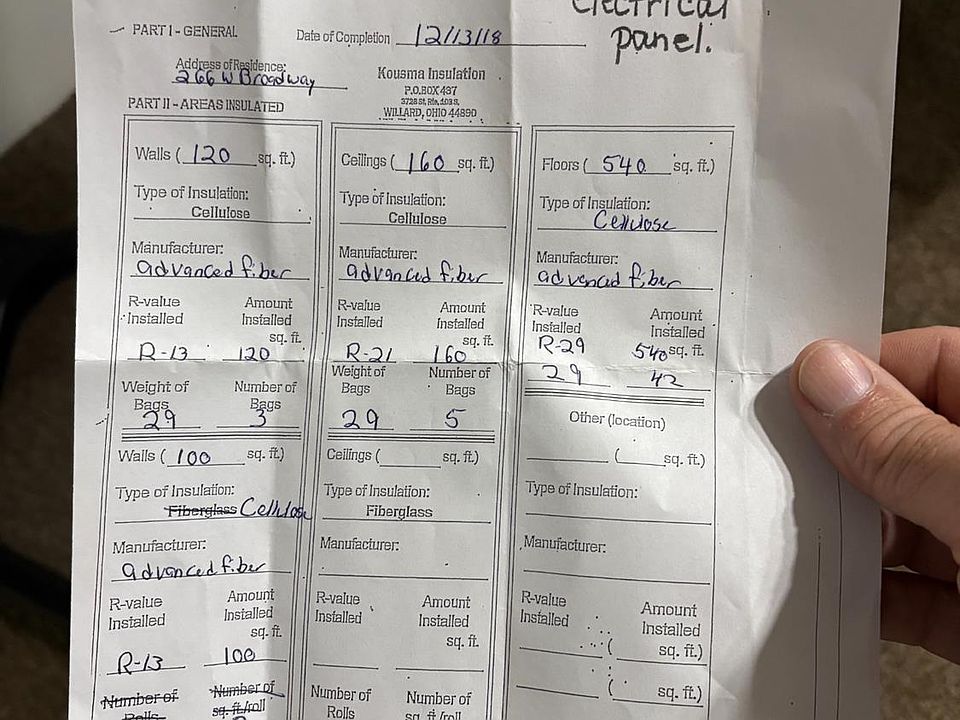 Electrical
panel.
PART I - GENERAL
Date of Completion 12/13/18
Address of Residence:
266 W Broadway
Kousma Insulation
P.O.BOX 437
3728 St. Rte. 103 S.
WILLARD, OHIO 44890
PART II - AREAS INSULATED
Walls ( 120 sq. ft.)
Type of Insulation:
Cellulose
Manufacturer:
advanced fiber
R-value Amount
Installed Installed
sq. ft.
R-13 120
Weight of Number of
Bags Bags
29 3
Walls ( 100 sq. ft.)
Type of Insulation:
Fiberglass Cellulose
Manufacturer:
advanced fiber
R-value Amount
Installed Installed
sq. ft.
R-13 100
Number of Number of
Rolls sq. ft/roll
Ceilings ( 160 sq. ft.)
Type of Insulation:
Cellulose
Manufacturer:
advanced fiber
R-value Amount
Installed Installed
sq. ft.
R-21 160
Weight of Number of
Bags Bags
29 5
Ceilings ( sq. ft.)
Type of Insulation:
Fiberglass
Manufacturer:
R-value Amount
Installed Installed
sq. ft.
Number of Number of
Rolls sq. ft/roll
Floors ( 540 sq. ft.)
Type of Insulation:
Cellulose
Manufacturer:
advanced fiber
R-value Amount
Installed Installed
R-29 540 sq. ft.
29 42
Other (location)
( sq. ft.)
Type of Insulation:
Manufacturer:
R-value Amount
Installed Installed
( sq. ft.)
( sq. ft.)